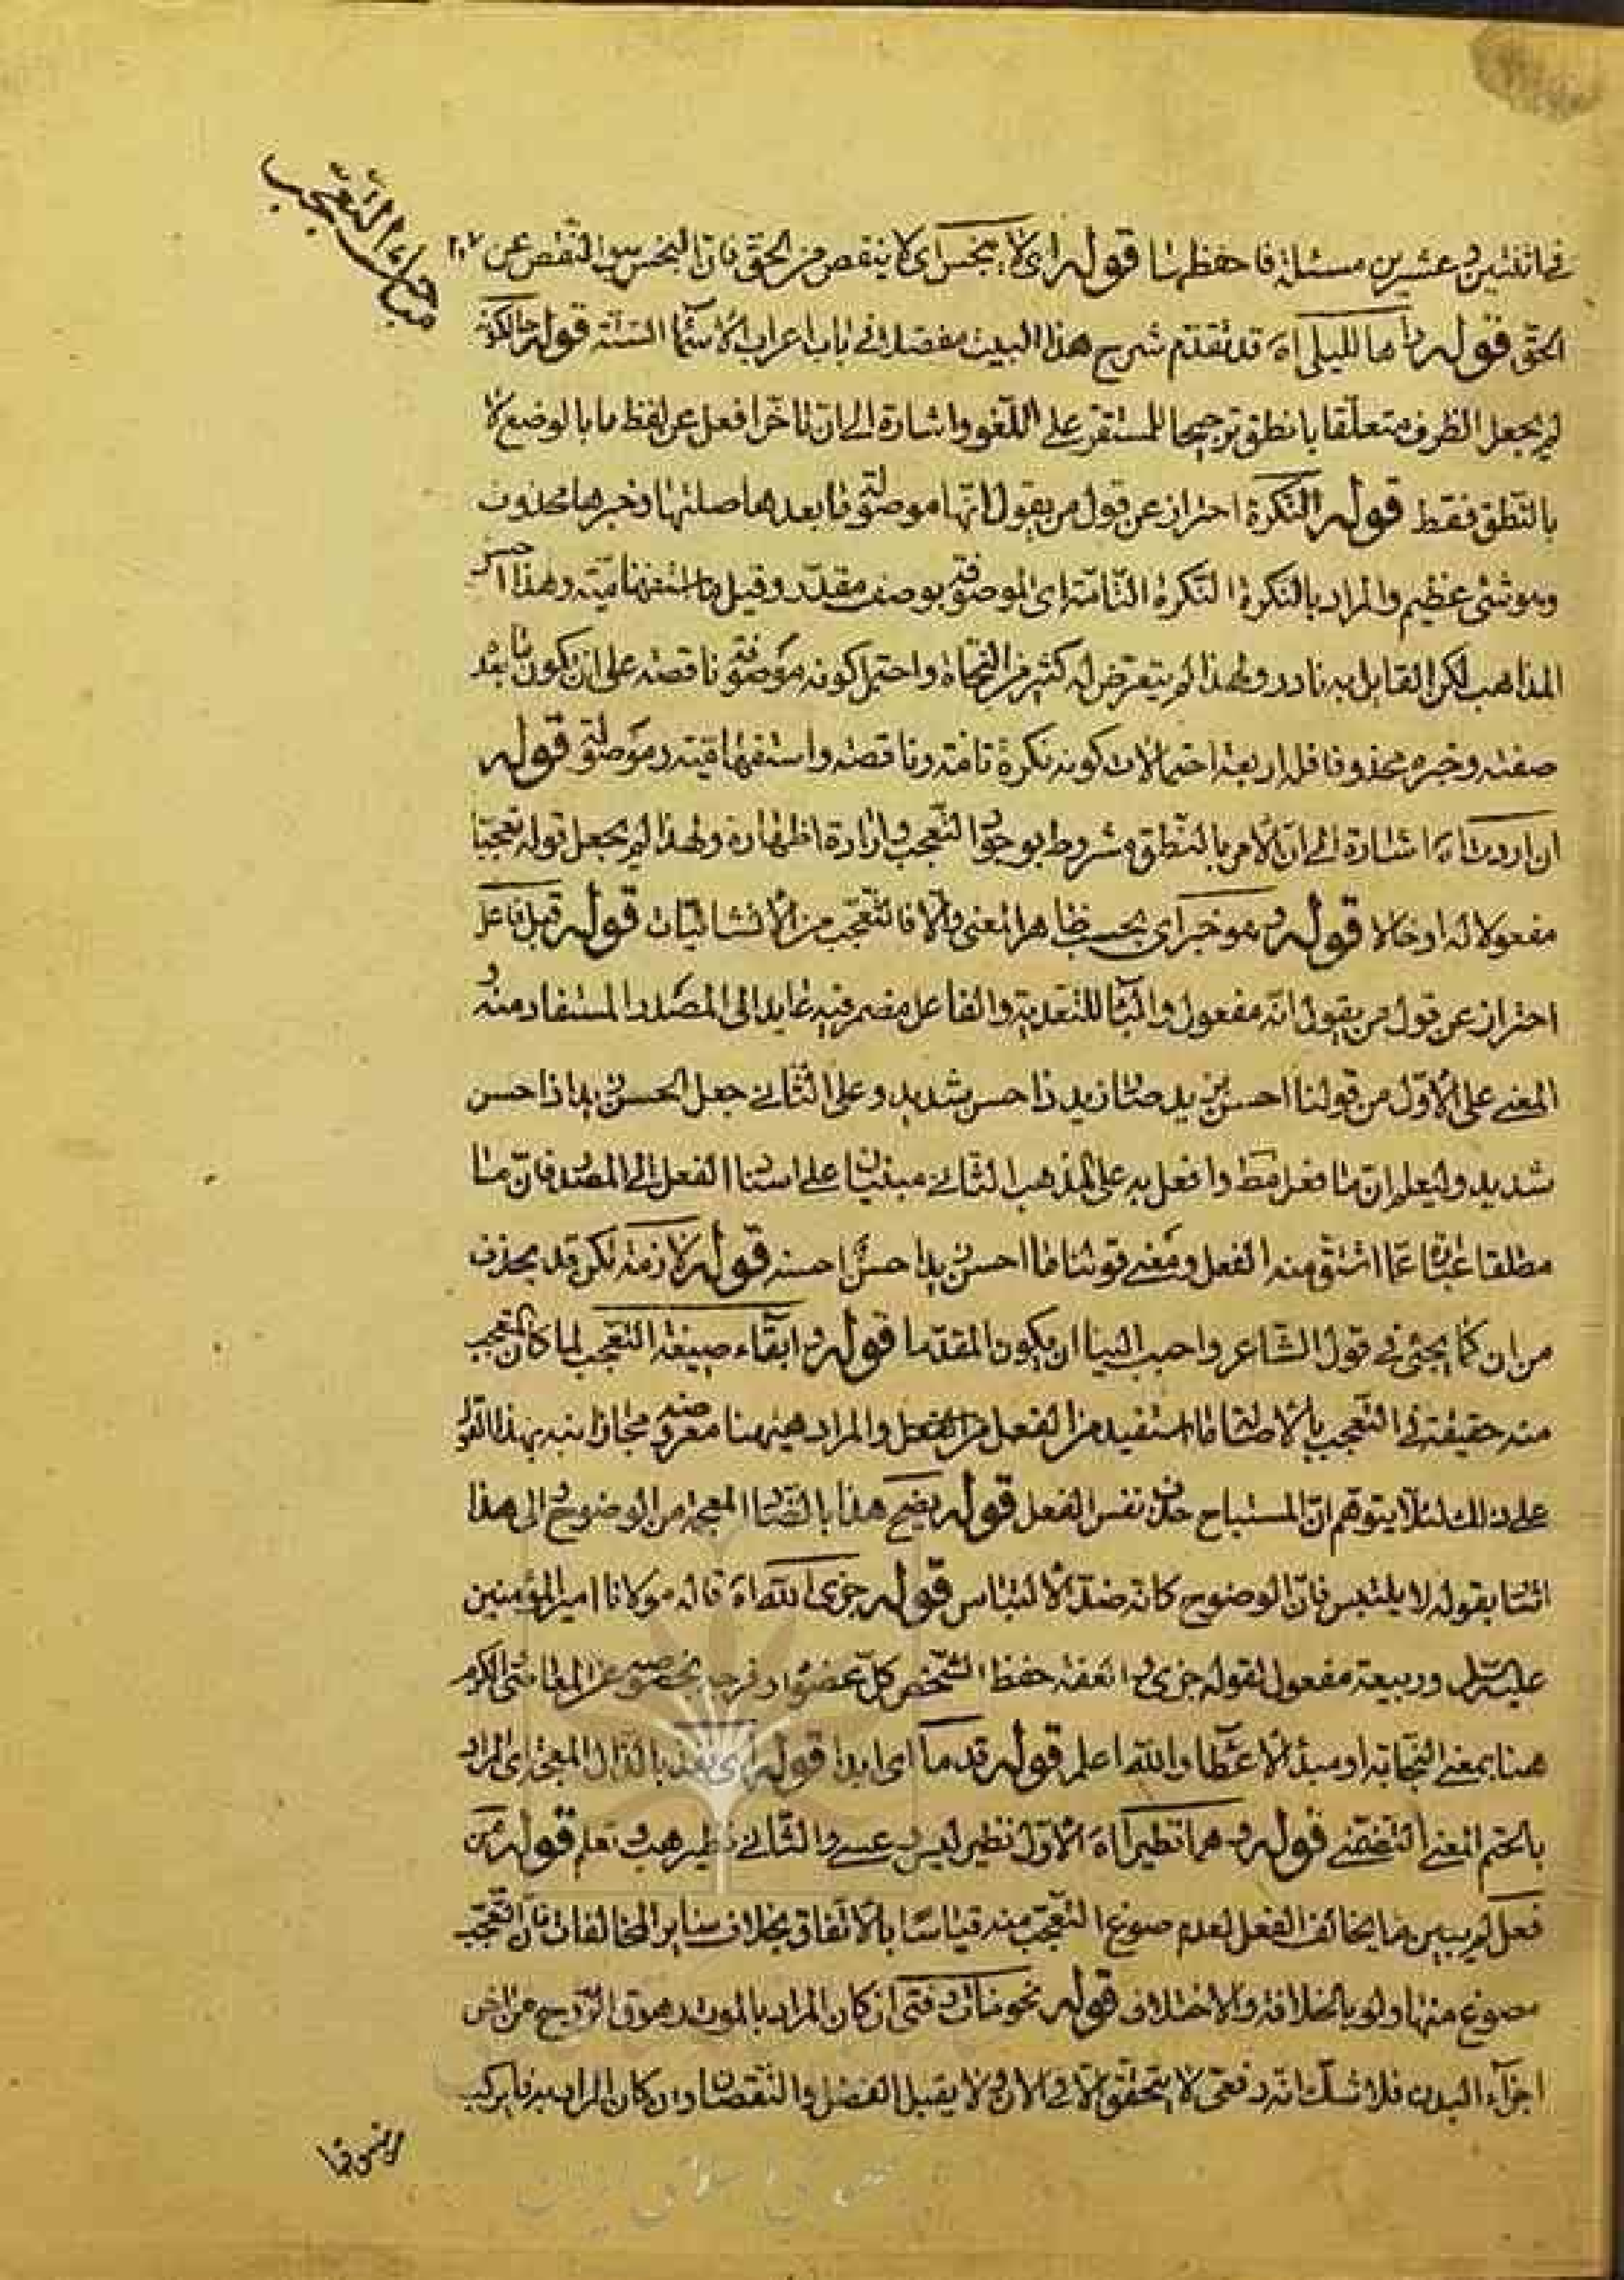 مبحث التعجب
في اثنتين و عشرين مسئلة فاحفظها قوله اى لا يبخس اى لا ينقص من الحق فان البخس هو النقص عن
الحق قوله واها لليلى اه قد تقدم شرح هذا البيت مفصلا في باب اعراب الاسماء الستة قوله حالكونه
لم يجعل الظرف متعلقا بانطق ترجيحا للمستقر على اللغو واشارة الى ان تاخر افعل عن لفظ ما بالوضع لا
بالنطق فقط قوله النكرة احتراز عن قول من يقول انها موصولة وما بعدها صلتها وخبرها محذوف
وهو شئ عظيم والمراد بالنكرة النكرة التامة اى الموصوفة بوصف مقدر وقيل ما استفهامية وهذا احسن
المذاهب لكن القايل به نادر ولهذا لم يتعرض له كثير من النحاة واحتمل كونه موصوفة ناقصة على ان يكون ما بعد
صفته وخبره محذوفا فله اربعة احتمالات كونه نكرة تامة وناقصة واستفهامية وموصولة قوله
ان اردت اه اشارة الى ان الامر بالنطق مشروط بوجود التعجب وارادة اظهاره ولهذا لم يجعل قوله تعجبا
مفعولا له او حالا قوله وهو خبر اى بحسب ظاهر المعنى والا فالتعجب من الانشائيات قوله قبل فاعل
احتراز عن قول من يقول انه مفعول والباء للتعدية والفاعل مضمر فيه عايد الى المصدر المستفاد منه و
المعنى على الاول من قولنا احسن بزيد صار زيد ذا حسن شديد وعلى الثاني جعل الحسن زيدا ذا حسن
شديد وليعلم ان ما افعل فقط وافعل به على المذهب الثاني مبنيان على اسناد الفعل الى المصدر فان ما
مطلقا عبارة عما اشتق منه الفعل ومعنى قولنا ما احسن زيدا حسن احسنه قوله لازمة لكن قد يحذف
من ان كما يجئ في قول الشاعر واحبب الينا ان يكون المقدما قوله وابقاء صيغة التعجب لما كان المتعجب
منه حقيقة في التعجب بالاصالة ما استفيد من الفعل والمراد هيهنا معروضه مجازا نبه بهذا القول
على ذلك لئلا يتوهم ان المستباح حذف نفس الفعل قوله يضح هذا بالضاد المعجمة من الوضوح الى هذا
اشار بقوله لا يلتبس فان الوضوح كانه ضد الالتباس قوله جزى الله اه قاله مولانا امير المؤمنين
عليه السلم وربيعة مفعول لقوله جزى والعفة حفظ الشخص كل عضو او فرجه بخصوصه عن المعاصى والكرم
هنا بمعنى النجابة او مبدء الاعطاء والله اعلم قوله قدما اى ابدا قوله اى نفذ بالذال المعجمة اى المراد
بالحتم المعنى التضمنى قوله وهما نظير اه الاول نظير ليس وعسى والثاني نظير هب وتعلم قوله من
فعل لم يبين ما يخالف الفعل لعدم صوغ التعجب منه قياسا بالاتفاق بخلاف ساير المخالفات فان التعجب
مصوغ منها ولو بالخلافة والاختلاف قوله نحو مات وفنى ان كان المراد بالموت زهوق الروح عن اخر
اجزاء البدن فلا شك انه دفعى لا يتحقق الا فى الان ولا يقبل الفضل والنقصان وان كان المراد به ما يركب